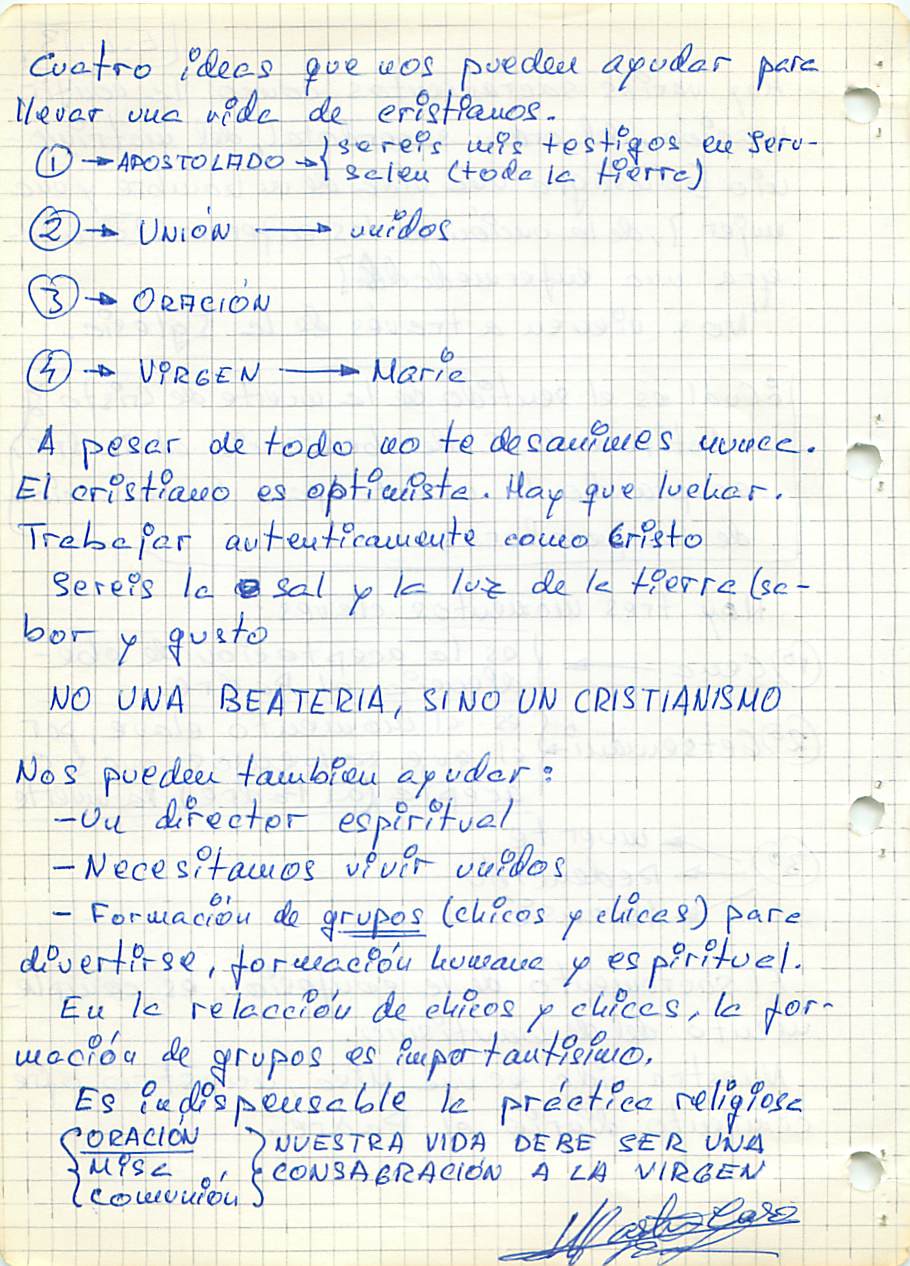 Cuatro ideas que nos pueden ayudar para
llevar una vida de cristianos.
① → APOSTOLADO → { sereis mis testigos en Jeru-
salen (toda la tierra)
② → UNIÓN → unidos
③ → ORACIÓN
④ → VIRGEN → Maria
A pesar de todo no te desanimes nunca.
El cristiano es optimista. Hay que luchar.
Trabajar autenticamente como Cristo
Sereis la sal y la luz de la tierra (sa-
bor y gusto
NO UNA BEATERIA, SINO UN CRISTIANISMO
Nos pueden tambien ayudar:
- Un director espiritual
- Necesitamos vivir unidos
- Formación de grupos (chicos y chicas) para
divertirse, formación humana y espiritual.
En la relacción de chicos y chicas, la for-
mación de grupos es importantísimo.
Es indispensable la práctica religiosa
{ ORACIÓN } NUESTRA VIDA DEBE SER UNA
Misa CONSAGRACIÓN A LA VIRGEN
Comunión